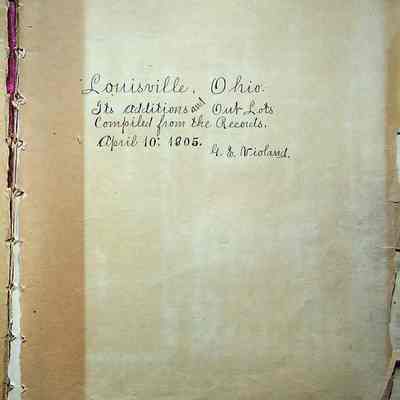 Louisville, Ohio.
Its Additions and Out Lots
Compiled from the Records.
April 10. 1895.
G. E. Violand.